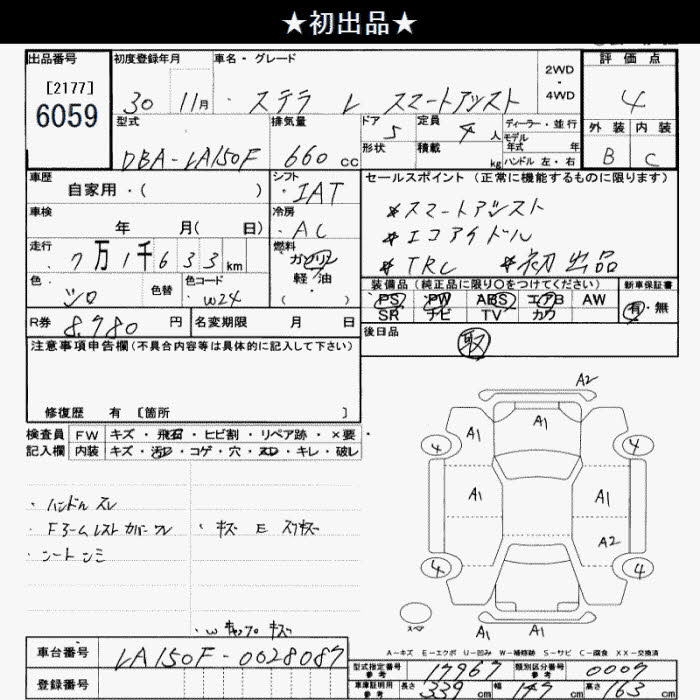 ★初出品★
出品番号
[2177]
6059
初度登録年月
30 11月
車名・グレード
ステラ L スマートアシスト
2WD
・
4WD
評価点
4
型式
DBA-LA150F
排気量
660 cc
ドア 5
定員 4 人
形状
積載 kg
ディーラー・並行
モデル年式 年
ハンドル 左・右
外装 内装
B C
車歴
自家用・( )
シフト
IAT
車検
年 月( 日)
冷房
AC
走行
7万1千633km
燃料
ガソリン
軽油
・( )
色
シロ
色替
色コード
W24
R券 8,980 円
名変期限 月 日
セールスポイント(正常に機能するものに限ります)
*スマートアシスト
*エコアイドル
*TRC *初出品
装備品(純品正に限り○をつけてください)
PS PW ABS エアB AW
SR ナビ TV カワ
新車保証書
有・無
後日品
取
注意事項申告欄(不具合内容等は具体的に記入して下さい)
修復歴 有 [箇所 ]
検査員記入欄
FW キズ・飛石・ヒビ割・リペア跡・×要・
内装 キズ・汚レ・コゲ・穴・スレ・キレ・破レ
・ハンドル スレ
・キズ E スリキズ
・シートシミ
A2
A1
A1
A1
A1
A1
A2
A1
A1
A1
4
4
4
4
スペア
A-キズ E-エクボ U-凹み W-補修跡 S-サビ C-腐食 XX-交換済
車台番号
LA150F-0028087
登録番号
型式指定番号 参考
17967
類別区分番号 参考
0007
車庫証明用 参考
長さ 339 cm
幅 147 cm
高さ 163 cm